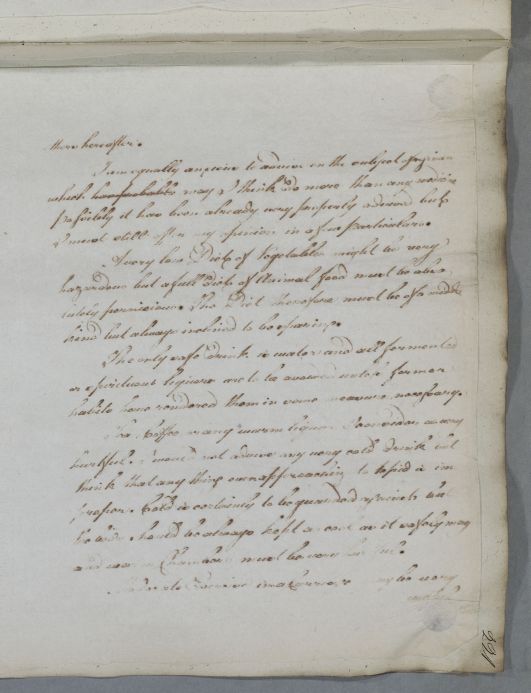 them hereafter.
I am equally anxious to advise on the subject of regimen
which may I think do more than any medicine
Possibly it has been already very properly advised but
I must still offer my opinion in a few particulars.
A very low Diet of Vegetables might be very
hazardous but a full Diet of Animal food must be abso
lutely pernicious. The Diet therefore must be of a middle
kind but always inclined to be sparing.
The only safe drink is water and all fermented
or spirituous liquors are to be avoided unless former
habits have rendered them in some measure necessary.
Tea, Coffee or any warm liquor I consider as very
hurtful. I would not advise any very cold drink but
think that any thing even approaching to tepid is im
proper. Cold is certainly to be guarded against but
he should be always kept as cool as it safely may
and warm Chambers must be
in a Carriage may be very
useful
166